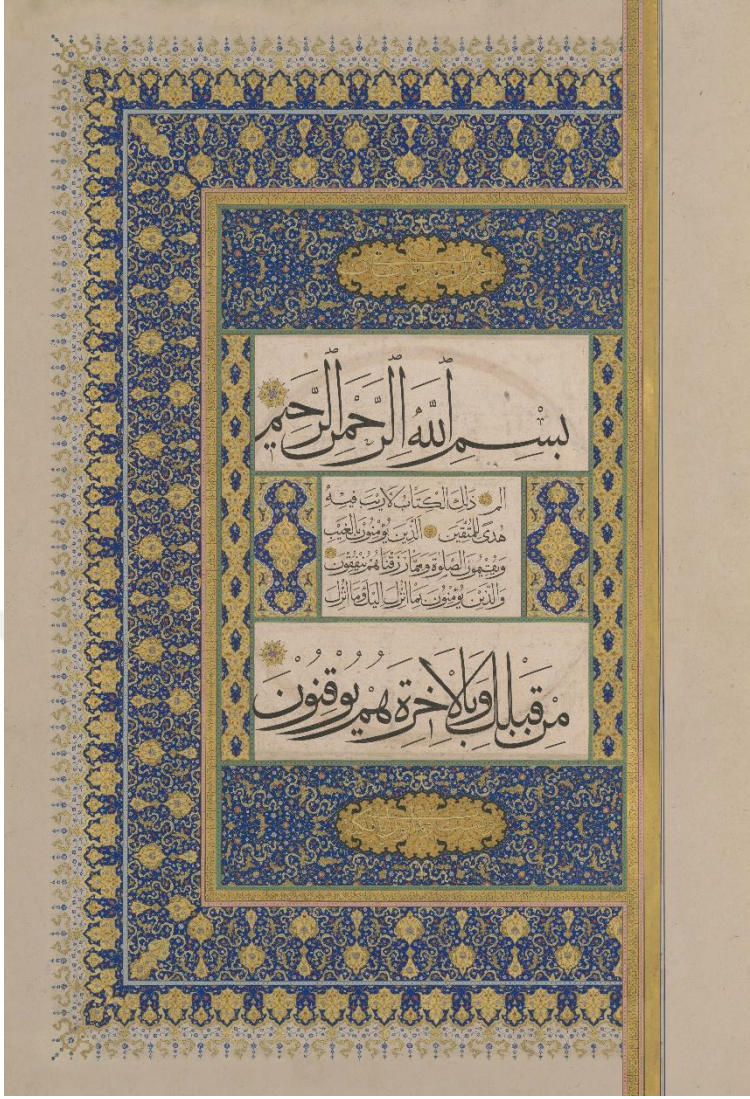 بِسْمِ اللَّهِ الرَّحْمٰنِ الرَّحِيمِ
الم ذٰلِكَ الْكِتَابُ لَارَيْبَ فِيهِ
هُدًى لِلْمُتَّقِينَ الَّذِينَ يُؤْمِنُونَ بِالْغَيْبِ
وَيُقِيمُونَ الصَّلٰوةَ وَمِمَّا رَزَقْنَاهُمْ يُنْفِقُونَ
وَالَّذِينَ يُؤْمِنُونَ بِمَا اُنْزِلَ اِلَيْكَ وَمَا اُنْزِلَ
مِنْ قَبْلِكَ وَبِالْاٰخِرَةِ هُمْ يُوقِنُونَ